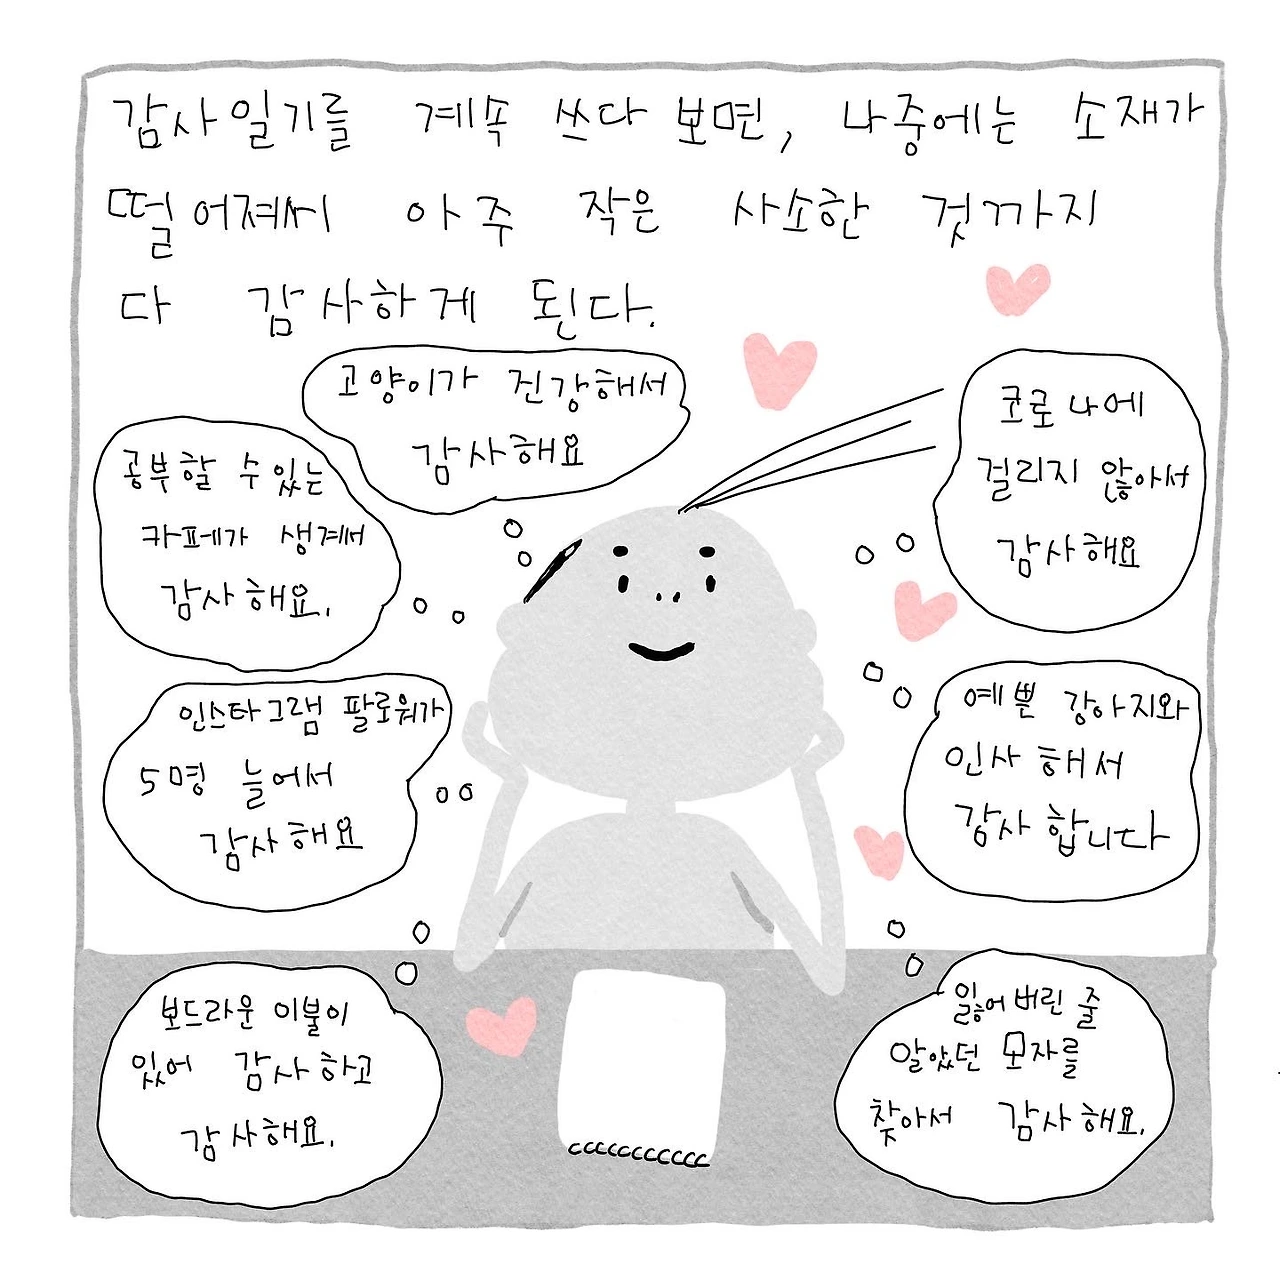 감사일기를 계속 쓰다 보면, 나중에는 소재가
떨어져서 아주 작은 사소한 것까지
다 감사하게 된다.
고양이가 건강해서
감사해요
공부할 수 있는
카페가 생겨서
감사해요.
인스타그램 팔로워가
5명 늘어서
감사해요
보드라운 이불이
있어 감사하고
감사해요.
코로나에
걸리지 않아서
감사해요
예쁜 강아지와
인사해서
감사합니다
잃어버린 줄
알았던 모자를
찾아서 감사해요.